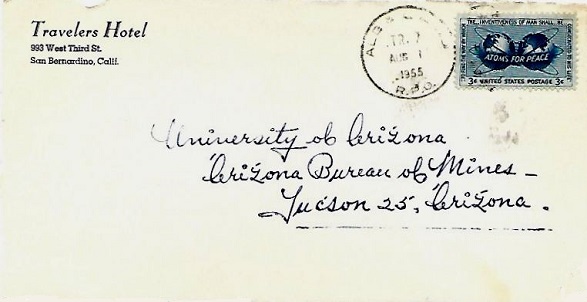 Travelers Hotel
993 West Third St.
San Bernardino, Calif.
TR. 7
AUG 1
1955
R.P.O.
ATOMS FOR PEACE
3¢ UNITED STATES POSTAGE 3¢
University of Arizona
Arizona Bureau of Mines –
Tucson 25, Arizona.